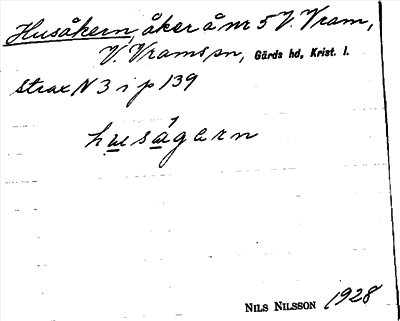 Husåkern, åker å nr 5 V. Vram,
V. Vrams sn, Gärds hd, Krist. l.
strax N 3 i p 139
husågern
NILS NILSSON 1928